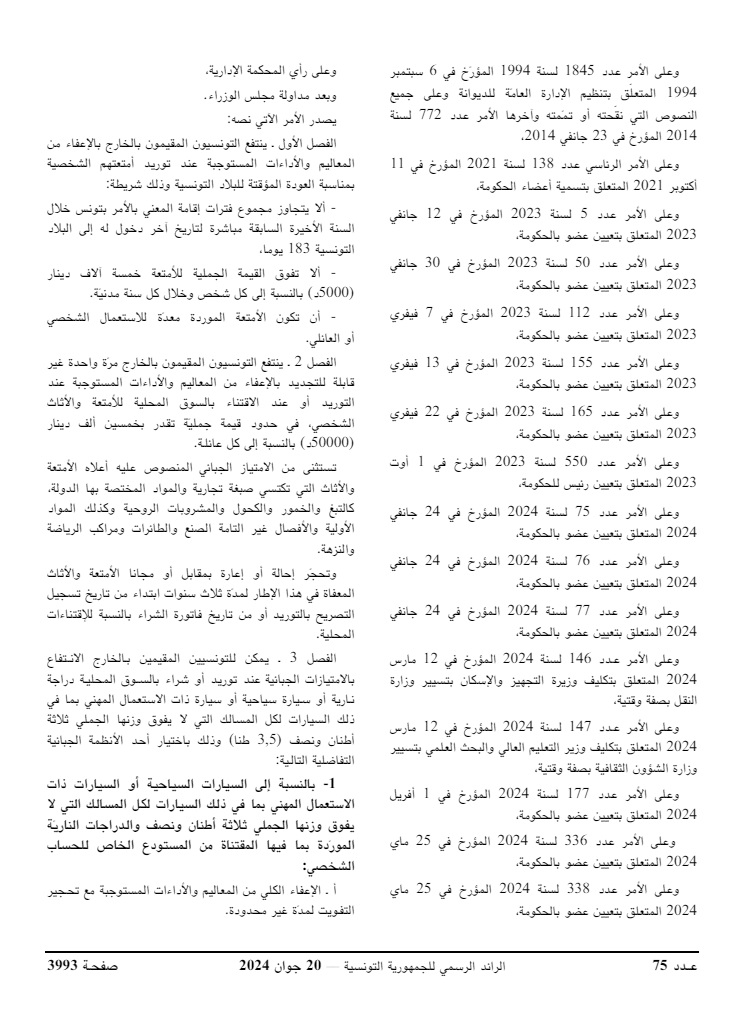 وعلى الأمر عدد 1845 لسنة 1994 المؤرّخ في 6 سبتمبر
1994 المتعلّق بتنظيم الإدارة العامّة للديوانة وعلى جميع
النصوص التي نقّحته أو تمّمته وآخرها الأمر عدد 772 لسنة
2014 المؤرخ في 23 جانفي 2014،
وعلى الأمر الرئاسي عدد 138 لسنة 2021 المؤرخ في 11
أكتوبر 2021 المتعلق بتسمية أعضاء الحكومة،
وعلى الأمر عدد 5 لسنة 2023 المؤرخ في 12 جانفي
2023 المتعلق بتعيين عضو بالحكومة،
وعلى الأمر عدد 50 لسنة 2023 المؤرخ في 30 جانفي
2023 المتعلق بتعيين عضو بالحكومة،
وعلى الأمر عدد 112 لسنة 2023 المؤرخ في 7 فيفري
2023 المتعلق بتعيين عضو بالحكومة،
وعلى الأمر عدد 155 لسنة 2023 المؤرخ في 13 فيفري
2023 المتعلق بتعيين عضو بالحكومة،
وعلى الأمر عدد 165 لسنة 2023 المؤرخ في 22 فيفري
2023 المتعلق بتعيين عضو بالحكومة،
وعلى الأمر عدد 550 لسنة 2023 المؤرخ في 1 أوت
2023 المتعلق بتعيين رئيس للحكومة،
وعلى الأمر عدد 75 لسنة 2024 المؤرخ في 24 جانفي
2024 المتعلق بتعيين عضو بالحكومة،
وعلى الأمر عدد 76 لسنة 2024 المؤرخ في 24 جانفي
2024 المتعلق بتعيين عضو بالحكومة،
وعلى الأمر عدد 77 لسنة 2024 المؤرخ في 24 جانفي
2024 المتعلق بتعيين عضو بالحكومة،
وعلى الأمر عدد 146 لسنة 2024 المؤرخ في 12 مارس
2024 المتعلق بتكليف وزيرة التجهيز والإسكان بتسيير وزارة
النقل بصفة وقتية،
وعلى الأمر عدد 147 لسنة 2024 المؤرخ في 12 مارس
2024 المتعلق بتكليف وزير التعليم العالي والبحث العلمي بتسيير
وزارة الشؤون الثقافية بصفة وقتية،
وعلى الأمر عدد 177 لسنة 2024 المؤرخ في 1 أفريل
2024 المتعلق بتعيين عضو بالحكومة،
وعلى الأمر عدد 336 لسنة 2024 المؤرخ في 25 ماي
2024 المتعلق بتعيين عضو بالحكومة،
وعلى الأمر عدد 338 لسنة 2024 المؤرخ في 25 ماي
2024 المتعلق بتعيين عضو بالحكومة،
وعلى رأي المحكمة الإدارية،
وبعد مداولة مجلس الوزراء.
يصدر الأمر الآتي نصه:
الفصل الأول ـ ينتفع التونسيون المقيمون بالخارج بالإعفاء من
المعاليم والأداءات المستوجبة عند توريد أمتعتهم الشخصية
بمناسبة العودة المؤقتة للبلاد التونسية وذلك شريطة:
- ألا يتجاوز مجموع فترات إقامة المعني بالأمر بتونس خلال
السنة الأخيرة السابقة مباشرة لتاريخ آخر دخول له إلى البلاد
التونسية 183 يوما،
- ألا تفوق القيمة الجملية للأمتعة خمسة آلاف دينار
(5000د) بالنسبة إلى كل شخص وخلال كل سنة مدنيّة.
- أن تكون الأمتعة الموردة معدّة للاستعمال الشخصي
أو العائلي.
الفصل 2 ـ ينتفع التونسيون المقيمون بالخارج مرّة واحدة غير
قابلة للتجديد بالإعفاء من المعاليم والأداءات المستوجبة عند
التوريد أو عند الاقتناء بالسوق المحلية للأمتعة والأثاث
الشخصي، في حدود قيمة جمليّة تقدر بخمسين ألف دينار
(50000د) بالنسبة إلى كل عائلة.
تستثنى من الامتياز الجبائي المنصوص عليه أعلاه الأمتعة
والأثاث التي تكتسي صبغة تجارية والمواد المختصة بها الدولة،
كالتبغ والخمور والكحول والمشروبات الروحية وكذلك المواد
الأولية والأفصال غير التامة الصنع والطائرات ومراكب الرياضة
والنزهة.
وتحجّر إحالة أو إعارة بمقابل أو مجانا الأمتعة والأثاث
المعفاة في هذا الإطار لمدّة ثلاث سنوات ابتداء من تاريخ تسجيل
التصريح بالتوريد أو من تاريخ فاتورة الشراء بالنسبة للإقتناءات
المحلية.
الفصل 3 ـ يمكن للتونسيين المقيمين بالخارج الانتفاع
بالامتيازات الجبائية عند توريد أو شراء بالسوق المحلية دراجة
نارية أو سيارة سياحية أو سيارة ذات الاستعمال المهني بما في
ذلك السيارات لكل المسالك التي لا يفوق وزنها الجملي ثلاثة
أطنان ونصف (3,5 طنا) وذلك باختيار أحد الأنظمة الجبائية
التفاضلية التالية:
1- بالنسبة إلى السيارات السياحية أو السيارات ذات
الاستعمال المهني بما في ذلك السيارات لكل المسالك التي لا
يفوق وزنها الجملي ثلاثة أطنان ونصف والدراجات الناريّة
المورّدة بما فيها المقتناة من المستودع الخاص للحساب
الشخصي:
أ ـ الإعفاء الكلي من المعاليم والأداءات المستوجبة مع تحجير
التفويت لمدّة غير محدودة.
عـدد 75 الرائد الرسمي للجمهورية التونسية — 20 جوان 2024 صفحـة 3993